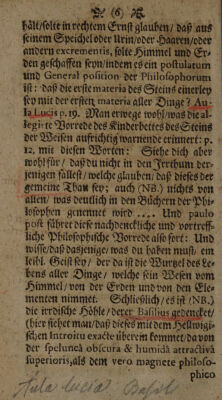 (6)
hält/solte in rechtem Ernst glauben/ daß aus
seinem Speichel oder Urin/oder Haaren/oder
andern excrementis, solte Himmel und Er-
den geschaffen seyn/indem es ein postulatum
und General position der Philosophorum
ist: daß die erste materia des Steins einerley
sey mit der ersten materia aller Dinge? Au-
la Lucis p. 19. Man erwege wohl/was die al-
legirte Vorrede des Kinderbettes des Steins
der Weisen aufrichtig warnende erinnert: p.
12. mit diesen Worten: Siehe dich aber
wohl für/ daß du nicht in den Irrthum der-
jenigen fällest/ welche glauben/ daß dieses der
gemeine Thau sey; auch (NB.) nichts von
allen/ was deutlich in den Büchern der Phi-
losophen genennet wird .... Und paulo
post führet diese nachdenckliche und vortreff-
liche Philosophische Vorrede also fort: Und
wisse/daß dasjenige/ was du haben must/ ein
leibl. Geist sey/ der da ist die Wurtzel des Le-
bens aller Dinge/ welche sein Wesen vom
Himmel/ von der Erden und von den Ele-
menten nimmet. Schließlich/ es ist (NB.)
die irrdische Höhle/ derer Basilius gedencket/
(hier siehet man/ daß dieses mit dem Hellwigi-
schen Introitu exacte überein kommet/ da er
von der spelunca obscura & humida attractiva
superioris, als dem vero magnete philoso-
phico
Aula Lucis Basil